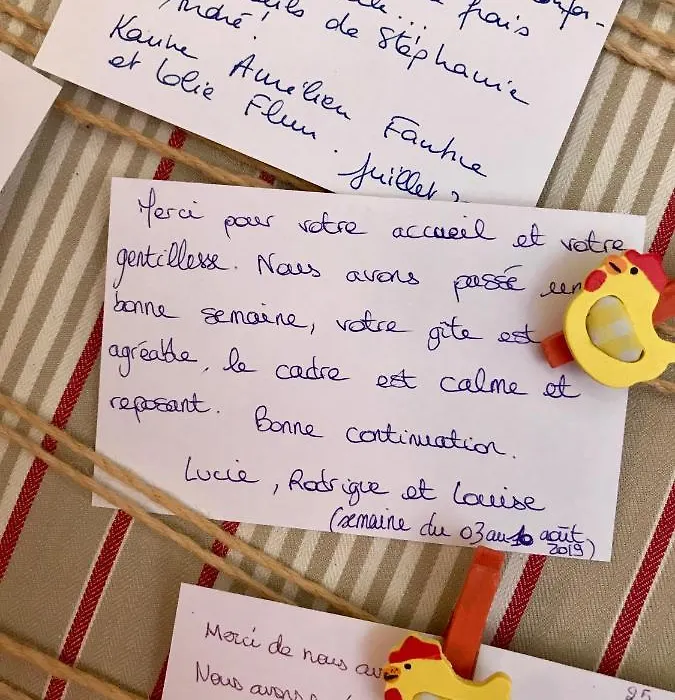 frais
André! de Stéphanie
Karine Amélien Fantine
et Lolie Fleur. Juillet
Merci pour votre accueil et votre
gentillesse. Nous avons passé une
bonne semaine, votre gîte est
agréable, le cadre est calme et
reposant. Bonne continuation.
Lucie, Rodrigue et Louise
(semaine du 03 au 10 août
2019)
Merci de nous
Nous avons
25